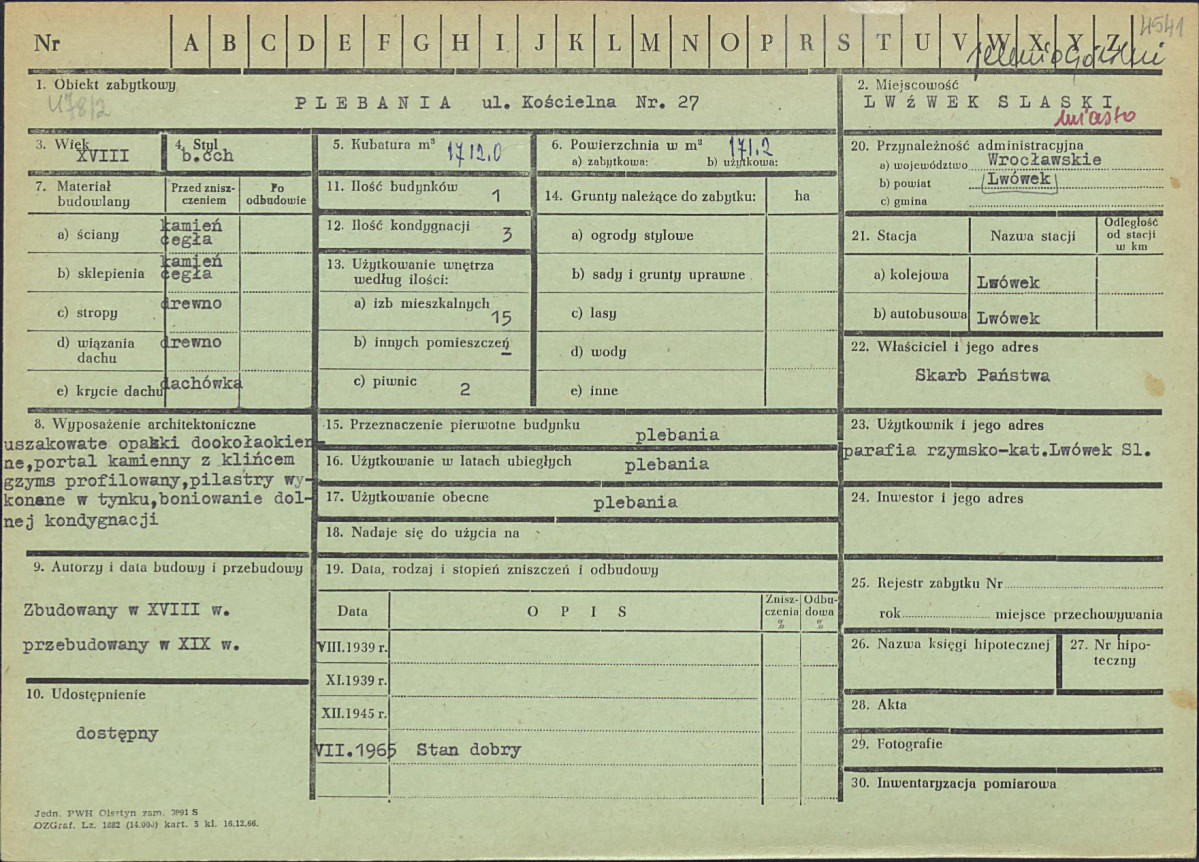 4541
Nr A B C D E F G H I J K L M N O P R S T U V W X Y Z
1. Obiekt zabytkowy
P L E B A N I A ul. Kościelna Nr. 27
2. Miejscowość
L W ź W E K S L A S K I
miasto
3. Wiek
XVIII
4. Styl
b.cch
5. Kubatura m³ 1712.0
6. Powierzchnia w m² 171.2
a) zabytkowa: b) użytkowa:
20. Przynależność administracyjna
a) województwo Wrocławskie
b) powiat Lwówek
c) gmina
7. Materiał budowlany
Przed znisz-
czeniem
Po
odbudowie
a) ściany kamień
cegła
b) sklepienia kamień
cegła
c) stropy drewno
d) wiązania
dachu drewno
e) krycie dachu dachówka
11. Ilość budynków 1
12. Ilość kondygnacji 3
13. Użytkowanie wnętrza
według ilości:
a) izb mieszkalnych 15
b) innych pomieszczeń –
c) piwnic 2
14. Grunty należące do zabytku: ha
a) ogrody stylowe
b) sady i grunty uprawne
c) lasy
d) wody
e) inne
21. Stacja Nazwa stacji
Odległość
od stacji
w km
a) kolejowa Lwówek
b) autobusowa Lwówek
22. Właściciel i jego adres
Skarb Państwa
8. Wyposażenie architektoniczne
uszakowate opaski dookołaokien-
ne,portal kamienny z klińcem
gzyms profilowany,pilastry wy-
konane w tynku,boniowanie dol-
nej kondygnacji
15. Przeznaczenie pierwotne budynku plebania
16. Użytkowanie w latach ubiegłych plebania
17. Użytkowanie obecne plebania
18. Nadaje się do użycia na
23. Użytkownik i jego adres
parafia rzymsko-kat.Lwówek Sl.
24. Inwestor i jego adres
9. Autorzy i data budowy i przebudowy
Zbudowany w XVIII w.
przebudowany w XIX w.
10. Udostępnienie
dostępny
19. Data, rodzaj i stopień zniszczeń i odbudowy
Data O P I S
Znisz-
czenia
%
Odbu-
dowa
%
VIII.1939 r.
XI.1939 r.
XII.1945 r.
VII.1965 Stan dobry
25. Rejestr zabytku Nr
rok miejsce przechowywania
26. Nazwa księgi hipotecznej
27. Nr hipo-
teczny
28. Akta
29. Fotografie
30. Inwentaryzacja pomiarowa
Jedn. PWH Olsztyn zam. 3991 S
OZGraf. Lz. 1882 (14.000) kart. 3 kl. 16.12.66.